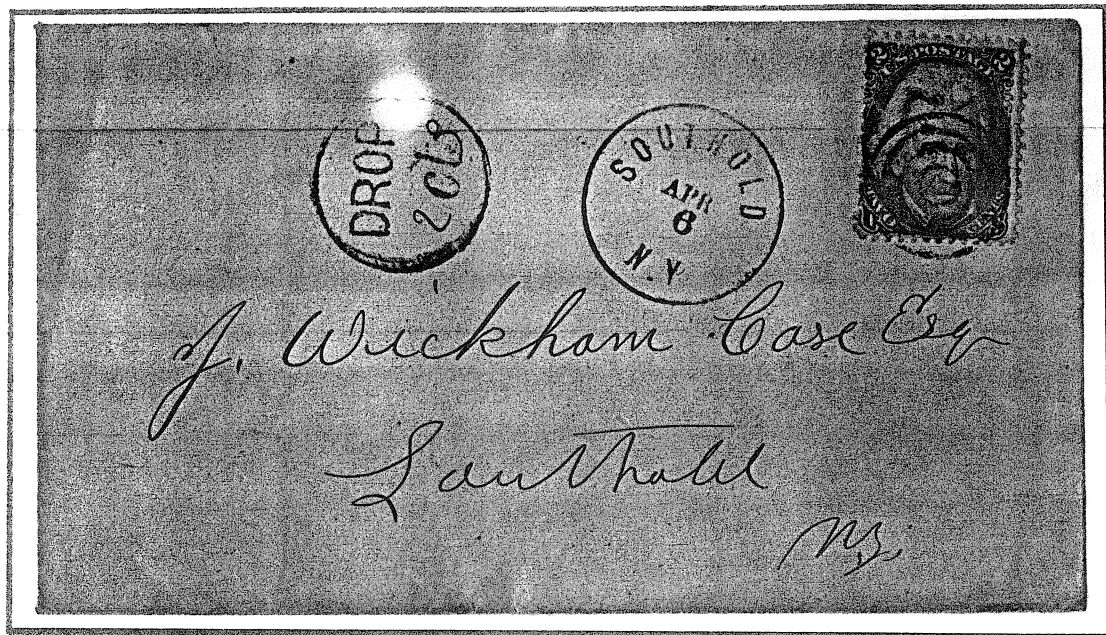 DROP
2 cts
SOUTHOLD
APR
6
N.Y
2 POSTAGE 2
J. Wickham Case Esq
Southold
N.Y.